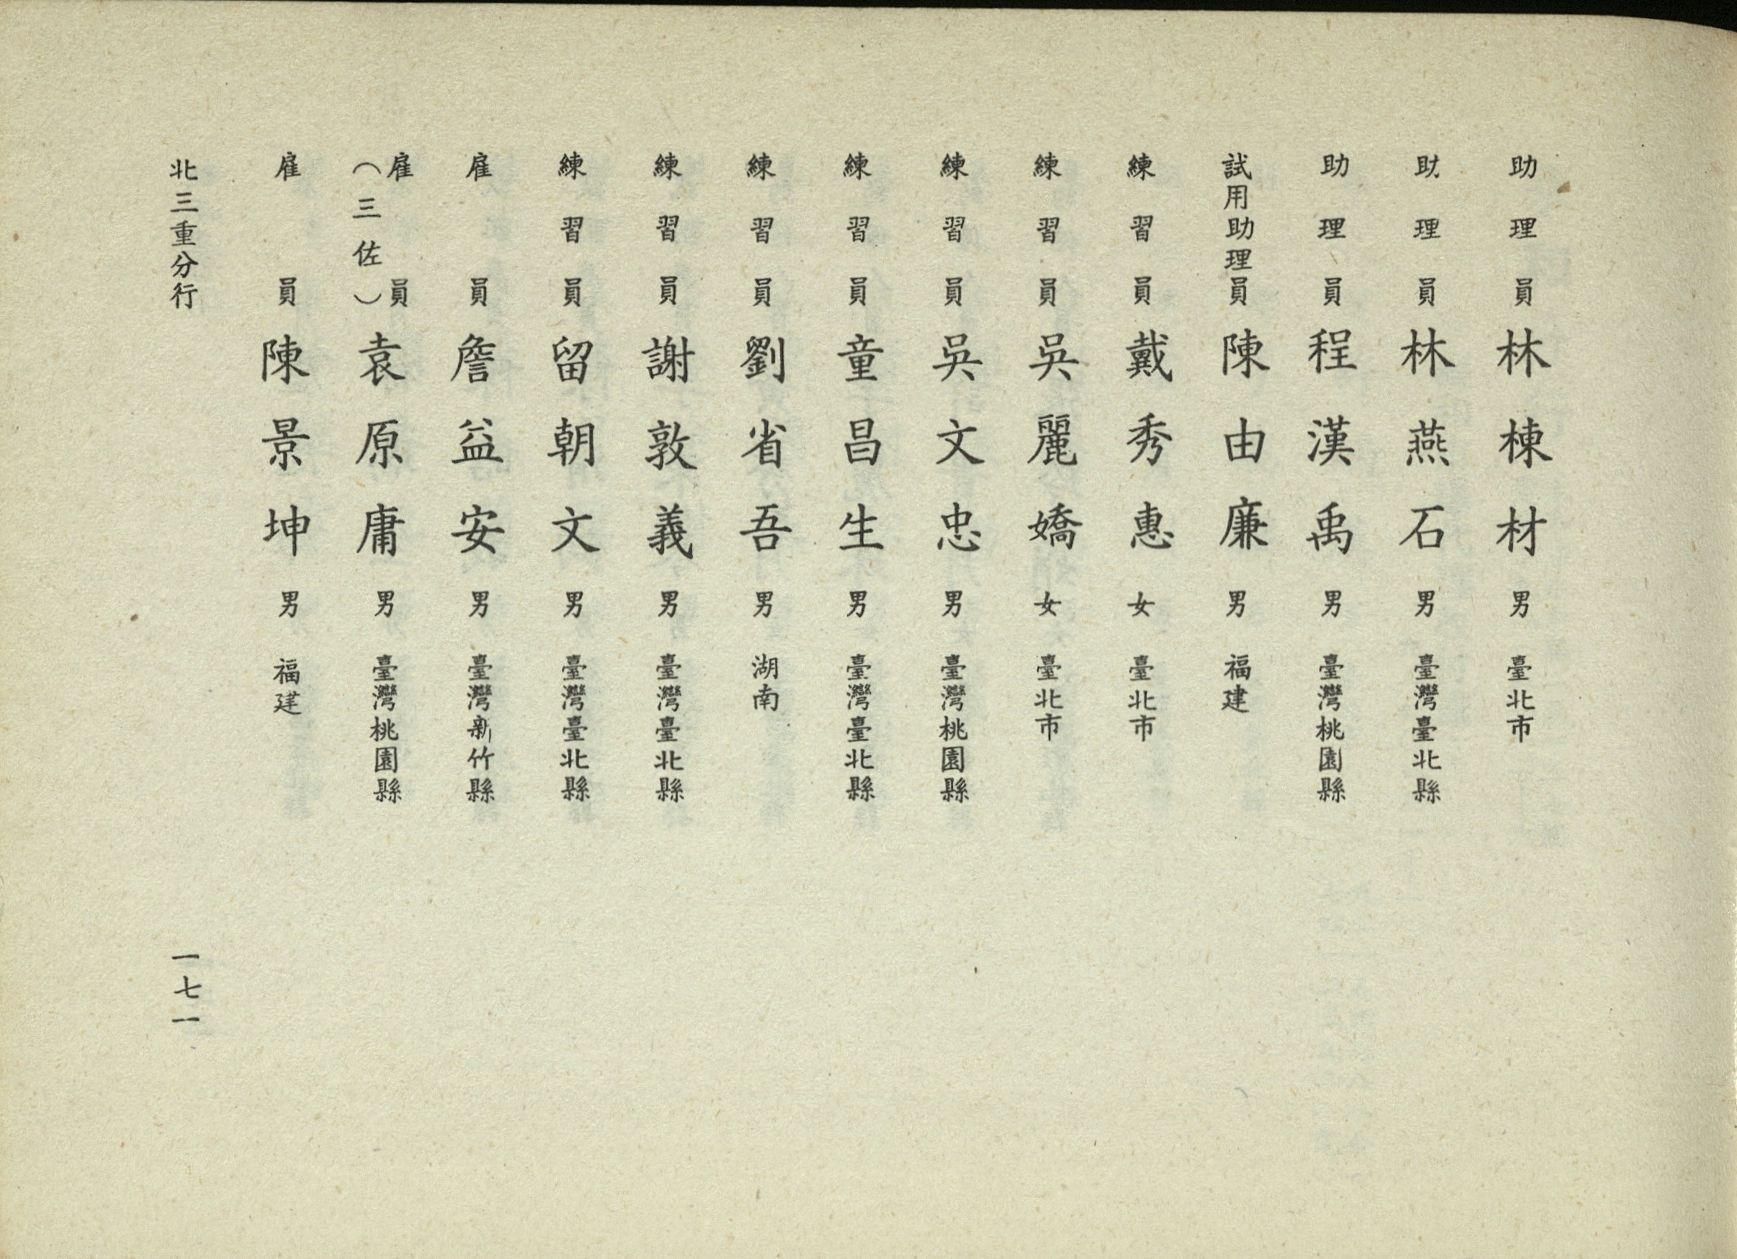 助理員 林棟材 男 臺北市
助理員 林燕石 男 臺灣臺北縣
助理員 程漢禹 男 臺灣桃園縣
試用助理員 陳由廉 男 福建
練習員 戴秀惠 女 臺北市
練習員 吳麗嬌 女 臺北市
練習員 吳文忠 男 臺灣桃園縣
練習員 童昌生 男 臺灣臺北縣
練習員 劉省吾 男 湖南
練習員 謝敦義 男 臺灣臺北縣
練習員 留朝文 男 臺灣臺北縣
雇員 詹益安 男 臺灣新竹縣
雇員（三佐） 袁原庸 男 臺灣桃園縣
雇員 陳景坤 男 福建
北三重分行 一七一